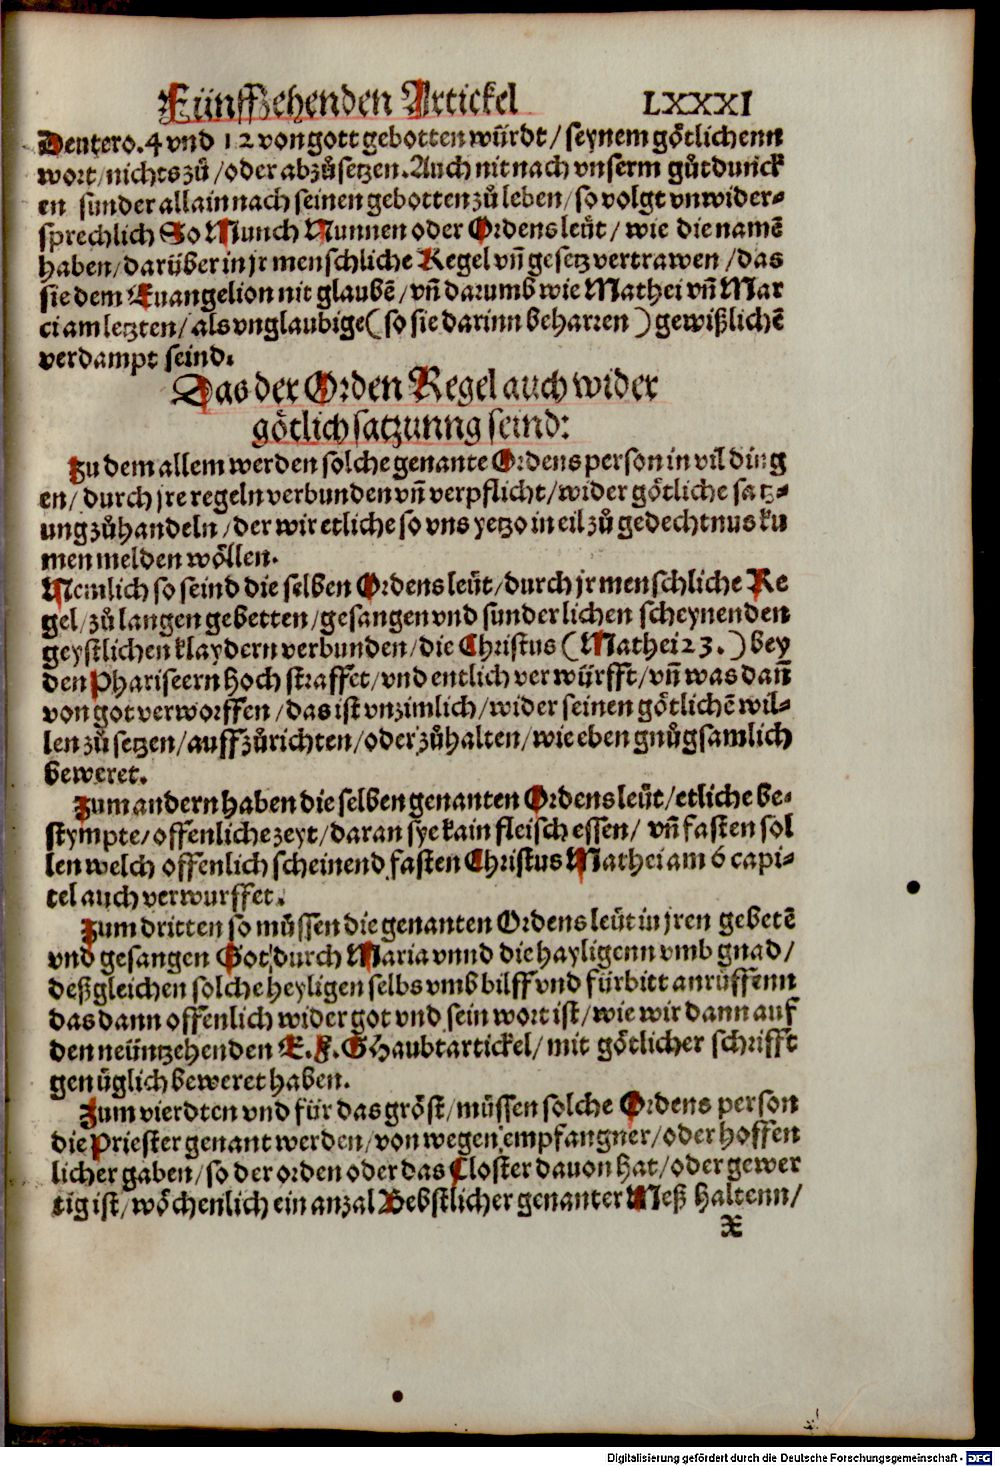 Fünffzehenden Artickel LXXXI
Deutero. 4 vnd 12 von gott gebotten würdt / seynem götlichenn
wort / nichts zů / oder abzůsetzen. Auch nit nach vnserm gůtdunck
en sunder allain nach seinen gebotten zů leben / so volgt vnwider-
sprechlich So Munch Nunnen oder Ordensleüt / wie die namē
haben / darüber in jr menschliche Regel vn̄ gesetz vertrawen / das
sie dem Euangelion nit glaubē / vn̄ darumb wie Mathei vn̄ Mar
ci am letzten / als vnglaubige ( so sie darinn beharren ) gewißlichē
verdampt seind.
Das der Orden Regel auch wider
götlich satzunng seind:
Zu dem allem werden solche genante Ordens person in vil ding
en / durch jre regeln verbunden vn̄ verpflicht / wider götliche satz-
ung zůhandeln / der wir etliche so vns yetzo in eil zů gedechtnus ku
men melden wöllen.
Nemlich so seind die selben Ordensleüt / durch jr menschliche Re
gel / zů langen gebetten / gesangen vnd sunderlichen scheynenden
geystlichen klaydern verbunden / die Christus ( Mathei 23. ) bey
den Phariseern hoch straffet / vnd entlich verwürfft / vn̄ was dan̄
von got verworffen / das ist vnzimlich / wider seinen götlichē wil-
len zů setzen / auffzůrichten / oder zůhalten / wie eben gnůgsamlich
beweret.
Zum andern haben die selben genanten Ordensleüt / etliche be-
stympte / offenliche zeyt / daran sye kain fleisch essen / vn̄ fasten sol
len welch offenlich scheinend fasten Christus Mathei am 6 capi-
tel auch verwurffet.
Zum dritten so müssen die genanten Ordensleüt in jren gebetē
vnd gesangen Got durch Maria vnnd die hayligenn vmb gnad /
deßgleichen solche heyligen selbs vmb hilff vnd fürbitt anrüffenn
das dann offenlich wider got vnd sein wort ist / wie wir dann auf
den neüntzehenden E. F. G Haubtartickel / mit götlicher schrifft
genüglich beweret haben.
Zum vierdten vnd für das gröst / müssen solche Ordens person
die Priester genant werden / von wegen empfangner / oder hoffen
licher gaben / so der orden oder das Closter dauon hat / oder gewer
tig ist / wöchenlich ein anzal Bebstlicher genanter Meß haltenn /
X
Digitalisierung gefördert durch die Deutsche Forschungsgemeinschaft - DFG